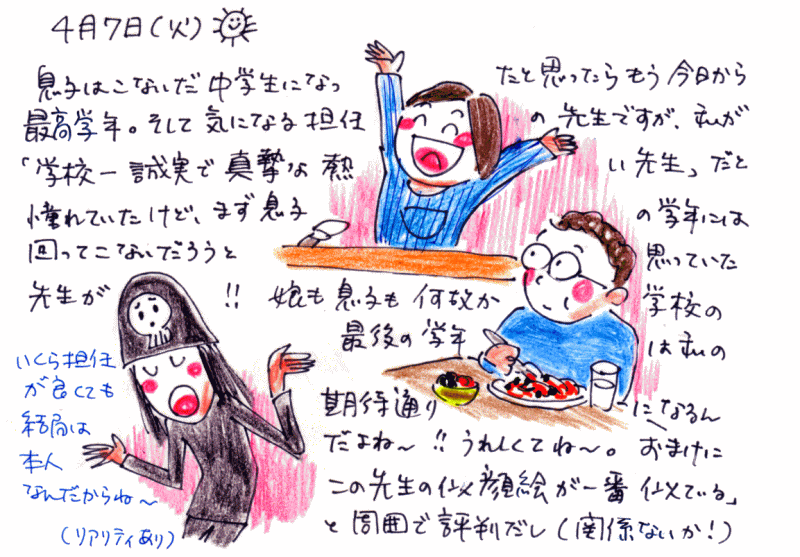 4月7日(火)
息子はこないだ中学生になったと思ったらもう今日から
最高学年。そして気になる担任の先生ですが、私が
「学校一誠実で真摯な熱い先生」だと
憧れていたけど、まず息子の学年には
回ってこないだろうと思っていた
先生が!! 娘も息子も何故か学校の
最後の学年は私の
期待通りになるん
だよね〜!! うれしくてね〜。おまけに
この先生の似顔絵が一番似ている」
と周囲で評判だし(関係ないか!)
いくら担任
が良くても
結局は
本人
なんだからね〜
(リアリティあり)